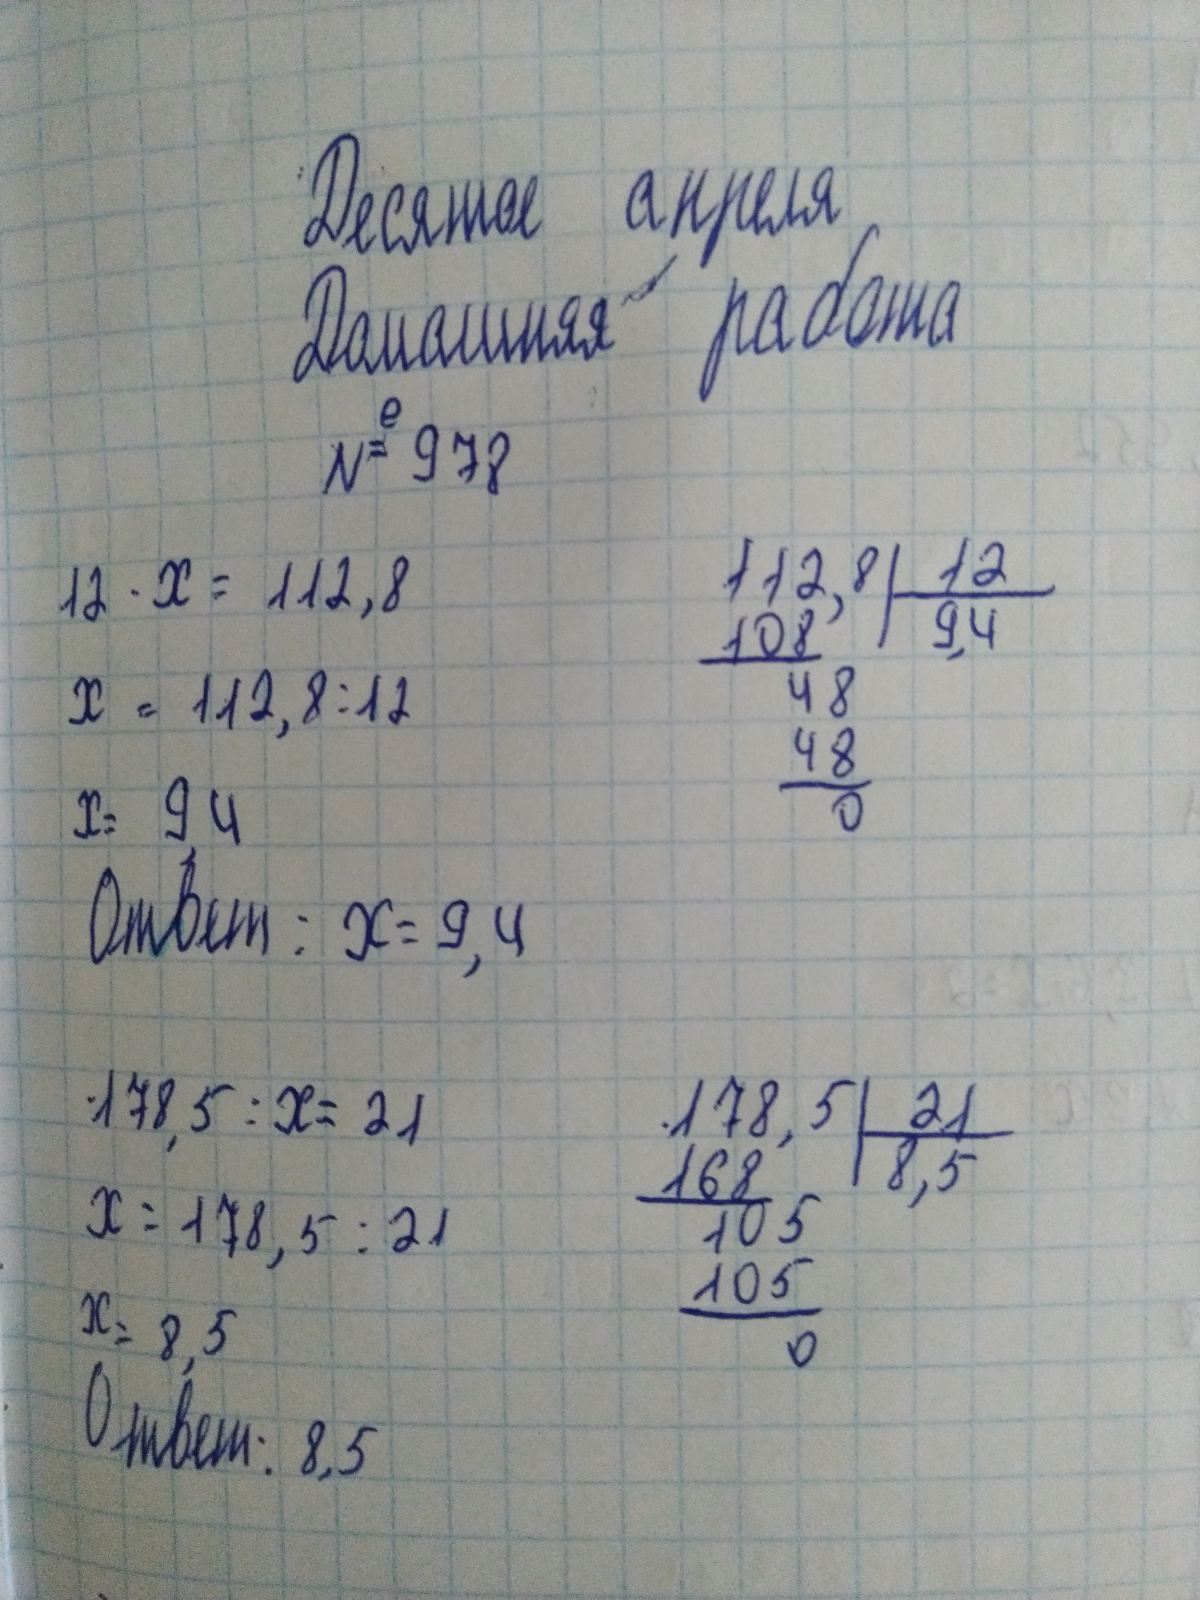 Десятое апреля
Домашняя работа
№ 978
12 · x = 112,8
x = 112,8 : 12
x = 9,4
Ответ: x = 9,4
112,8 | 12
108 9,4
48
48
0
178,5 : x = 21
x = 178,5 : 21
x = 8,5
Ответ: 8,5
178,5 | 21
168 8,5
105
105
0